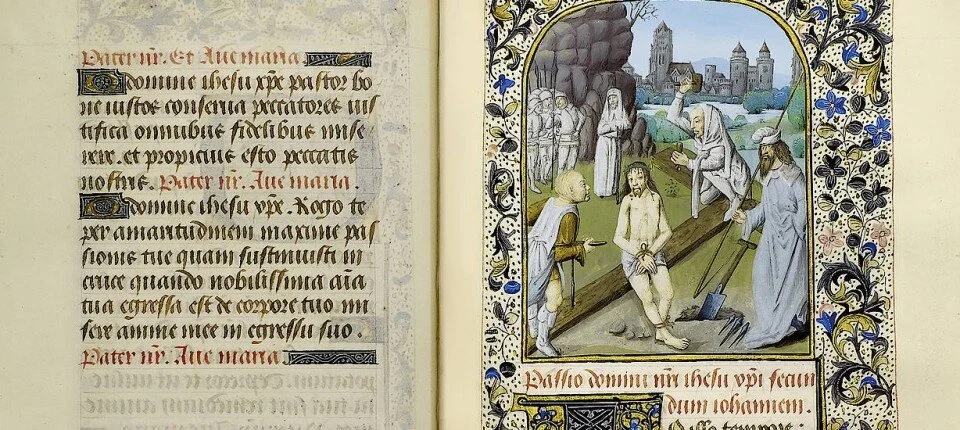 Pater nr̃. Et Aue maria
O domine ihesu xp̃e pastor bo
ne iustos conserua peccatores ius
tifica omnibus fidelibus mise
rere. et propicius esto peccatis
nostris. Pater nr̃. Aue maria.
O domine ihesu xp̃e. Rogo te
per amaritudinem maxime pas
sionis tue quam sustinuisti in
cruce quando nobilissima aĩa
tua egressa est de corpore tuo mi
sere anime mee in egressu suo.
Pater nr̃. Aue maria
Passio domini nr̃i ihesu xp̃i secun
dum iohannem.